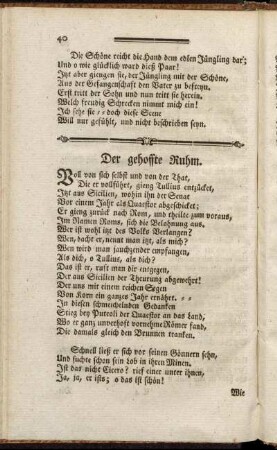 40
Die Schöne reicht die Hand dem edlen Jüngling dar;
Und o wie glücklich ward dieß Paar!
Itzt aber giengen sie, der Jüngling mit der Schöne,
Aus der Gefangenschaft den Vater zu befreyn.
Erst tritt der Sohn und nun tritt sie herein.
Welch freudig Schrecken nimmt mich ein!
Ich sehe sie - - doch diese Scene
Will nur gefühlt, und nicht beschrieben seyn.
Der gehoffte Ruhm.
Voll von sich selbst und von der That,
Die er vollführet, gieng Tullius entzücket,
Itzt aus Sicilien, wohin ihn der Senat
Vor einem Jahr als Quaestor abgeschicket;
Er gieng zurück nach Rom, und theilte zum voraus,
Im Namen Roms, sich die Belohnung aus.
Wer ist wohl itzt des Volks Verlangen?
Wen, dacht er, nennt man itzt, als mich?
Wen wird man jauchzender empfangen,
Als dich, o Tullius, als dich?
Das ist er, ruft man dir entgegen,
Der aus Sicilien der Theurung abgewehrt!
Der uns mit einem reichen Segen
Von Korn ein ganzes Jahr ernährt. - -
In diesen schmeichelnden Gedanken
Stieg bey Puteoli der Quaestor an das Land,
Wo er ganz unverhofft vornehme Römer fand,
Die damals gleich den Brunnen tranken.
Schnell ließ er sich vor seinen Gönnern sehn,
Und suchte schon sein Lob in ihren Minen.
Ist das nicht Cicero? rief einer unter ihnen,
Ja, ja, er ists; o das ist schön!
Wie